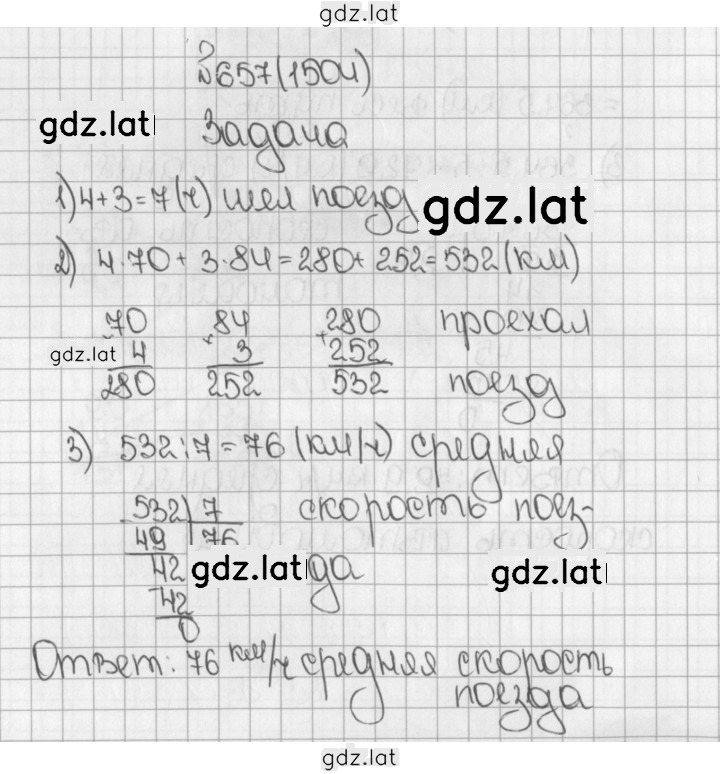 gdz.lat
№ 657 (1504)
gdz.lat
Задача
1) 4+3=7(ч) шел поезд
gdz.lat
2) 4·70+3·84=280+252=532(км)
70 84 280 проехал
gdz.lat 4 × 3 + 252
280 252 532 поезд
3) 532:7=76(км/ч) средняя
532 7 скорость поез-
49 76
42 gdz.lat да gdz.lat
42
0
Ответ: 76 км/ч средняя скорость
поезда
gdz.lat